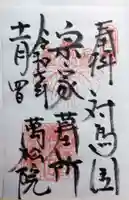 奉拝 対馬国
宗家墓所
萬松院
令和元年
十一月四日